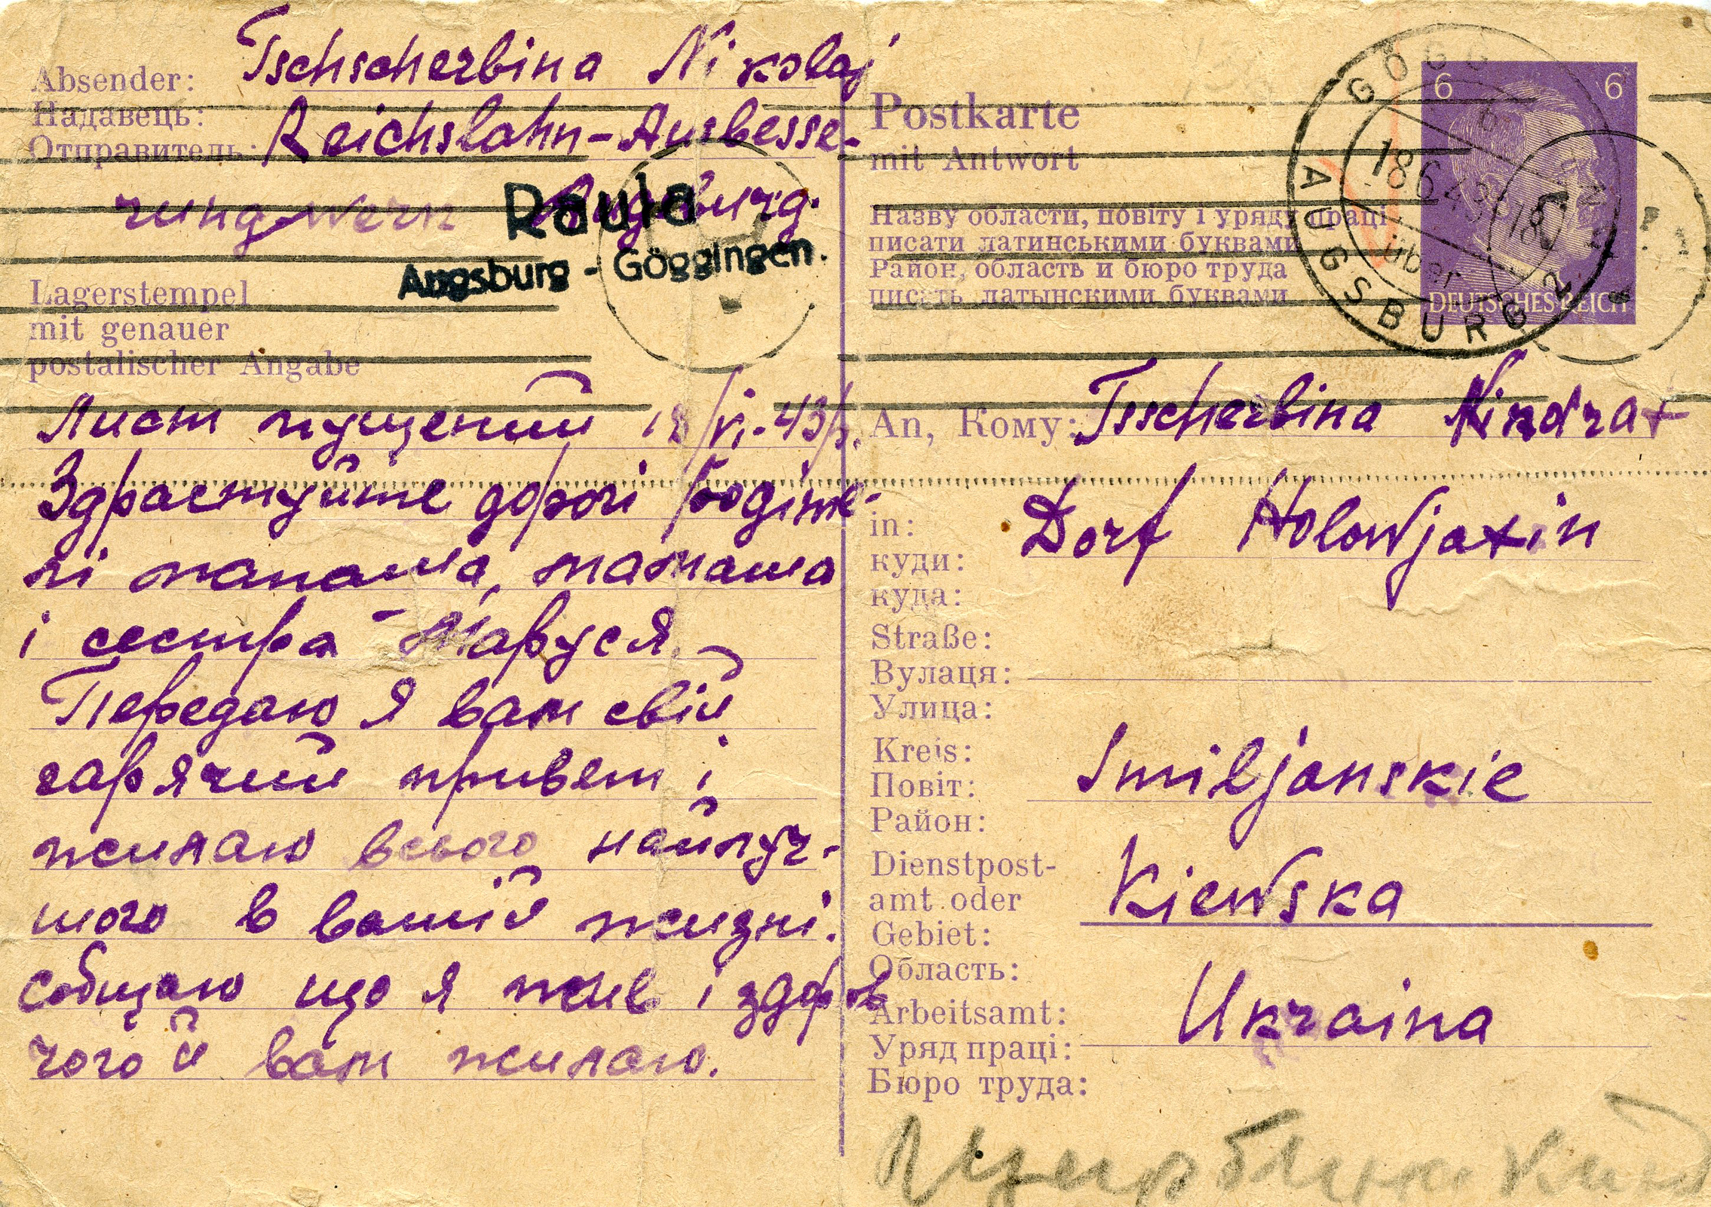 Absender: Tschscherbina Nikolaj
Надавець:
Отправитель: Reichsbahn-Ausbesse-
rungswerk Augsburg.
Raula
Augsburg - Göggingen.
Lagerstempel
mit genauer
postalischer Angabe
Лист пущений 18/VI-43р.
Здраствуйте дорогі родите-
лі папаша, мамаша
і сестра Маруся.
Передаю я вам свій
гарячий привет і
жилаю всього найлуч-
шого в вашій жизні.
собщаю що я жив і здоров
чого й вам жилаю.
Postkarte
mit Antwort
Назву области, повіту і уряду праці
писати латинськими буквами
Район, область и бюро труда
писать латынскими буквами
6 6
DEUTSCHES REICH
GÖGG
AUGSBURG 2
18.6.43
über
An, Кому: Tsscherbina Kindrat
in: Dorf Holowjatin
куди:
куда:
Straße:
Вулаця:
Улица:
Kreis: Smiljanskie
Повіт:
Район:
Dienstpost-
amt oder Kiewska
Gebiet:
Область:
Arbeitsamt: Ukraina
Уряд праці:
Бюро труда: